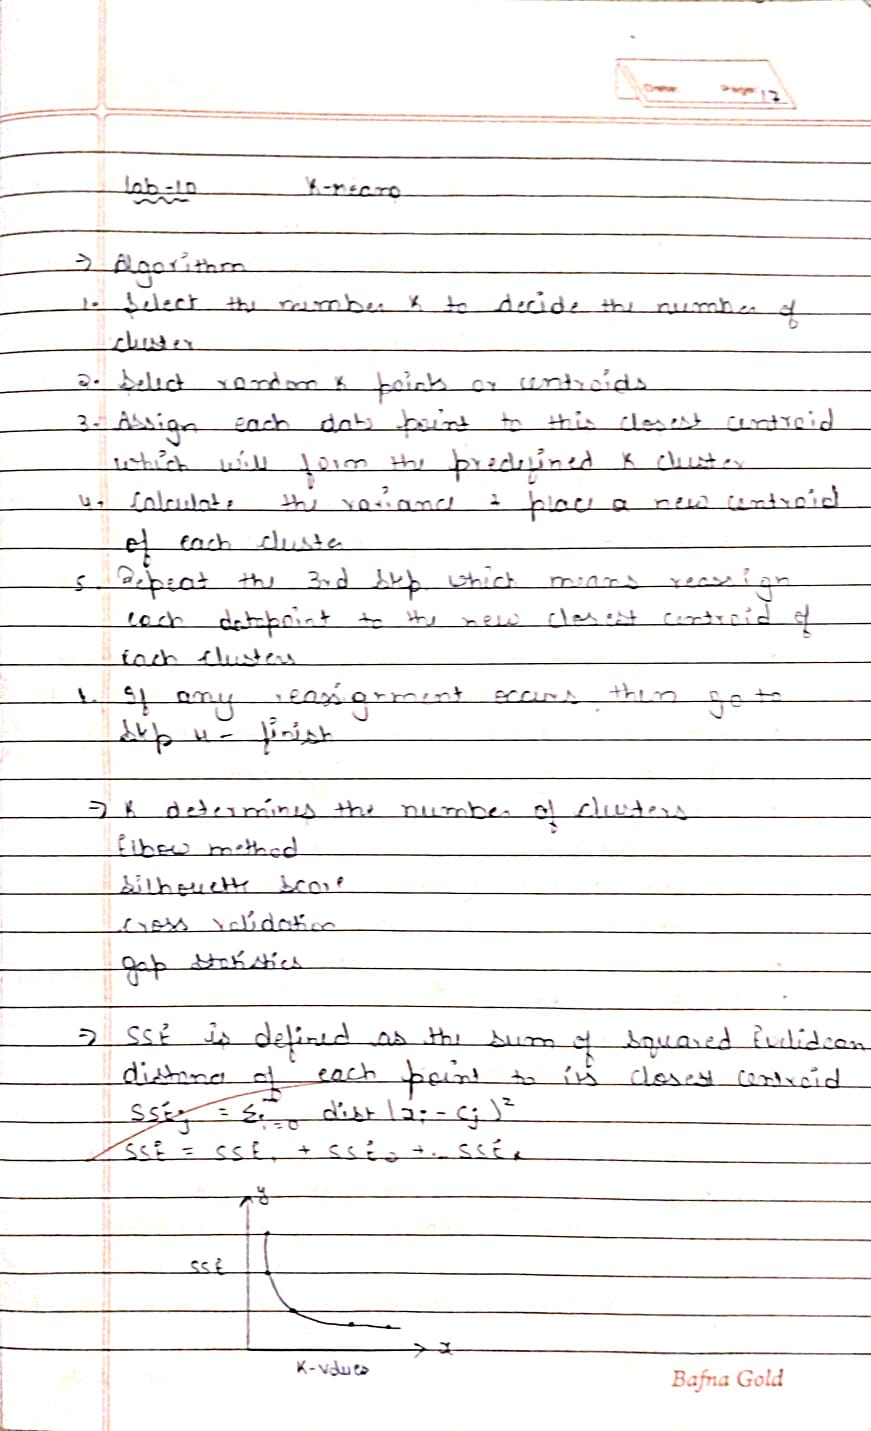 Date: Page: 17
Lab-10 K-means
⇒ Algorithm
1. Select the number K to decide the number of
cluster
2. Select random K points or centroids
3. Assign each data point to this closest centroid
which will form the predefined K cluster
4. Calculate the variance & place a new centroid
of each cluster
5. Repeat the 3rd step which means reassign
each datapoint to the new closest centroid of
each clusters
6. If any reassignment occurs, then go to
step 4 - finish
⇒ K determines the number of clusters
Elbow method
Silhouette score
cross validation
gap statistics
⇒ SSE is defined as the sum of squared Euclidean
distance of each point to its closest centroid
SSEj = Σi=0 dist (xi - cj)²
SSE = SSE1 + SSE2 + .. SSEk
y
SSE
x
K-values
Bafna Gold